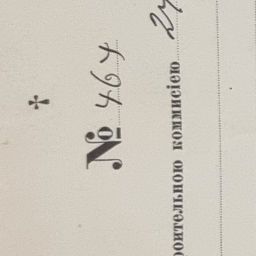 № 467
роительною коммисіею 27